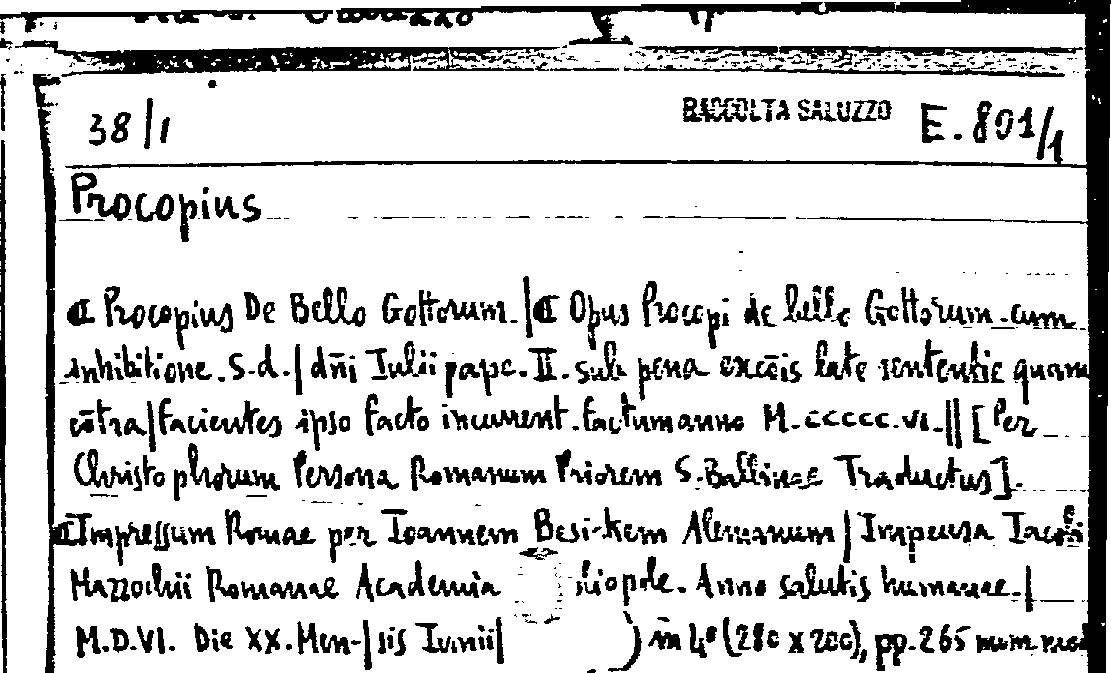 38/1 RACCOLTA SALUZZO E.801/1
Procopius
ℂ Procopius De Bello Gottorum.|ℂ Opus Procopi de bello Gottorum.cum
inhibitione.S.d.|dn̄i Iulii pape.II.sub pena excōis late sententie quam
cōtra|facientes ipso facto incurrent.factumanno M.ccccc.vi.|| [Per
Christophorum Persona Romanum Priorem S.Balbinae Traductus].
ℂImpressum Romae per Ioannem Besicken Alemanum|Impensa Iacobi
Mazzochii Romanae Academia bliopole. Anno salutis humanae.|
M.D.VI. Die XX.Men-|sis Iunii| ) in 4° (280 x 200), pp.265 num.